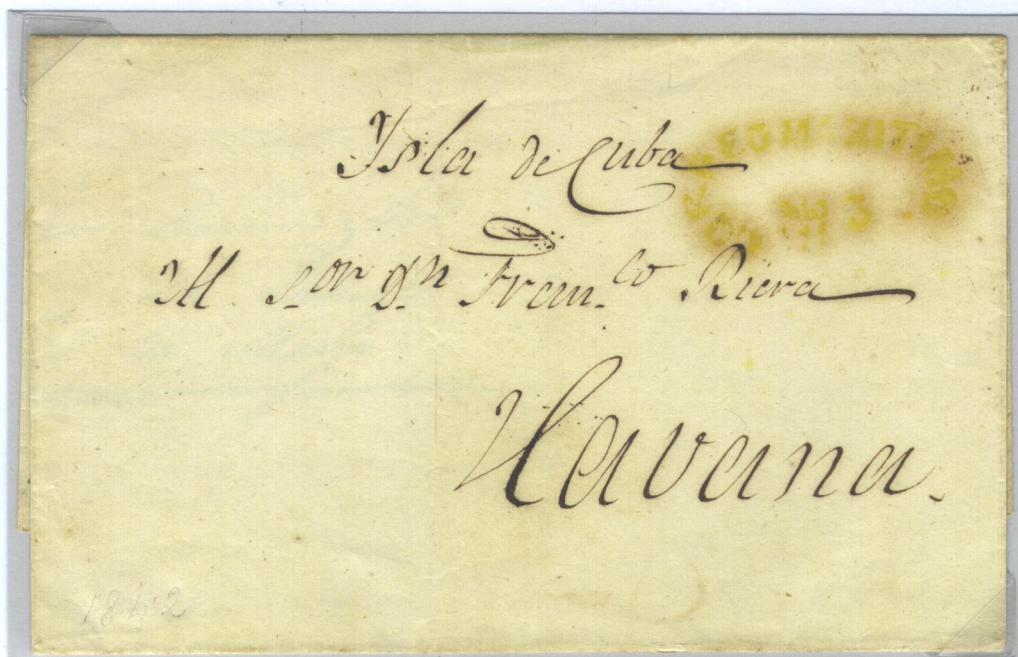 Ysla de Cuba
Al Sor Dn Franco Riera
Havana.
1842